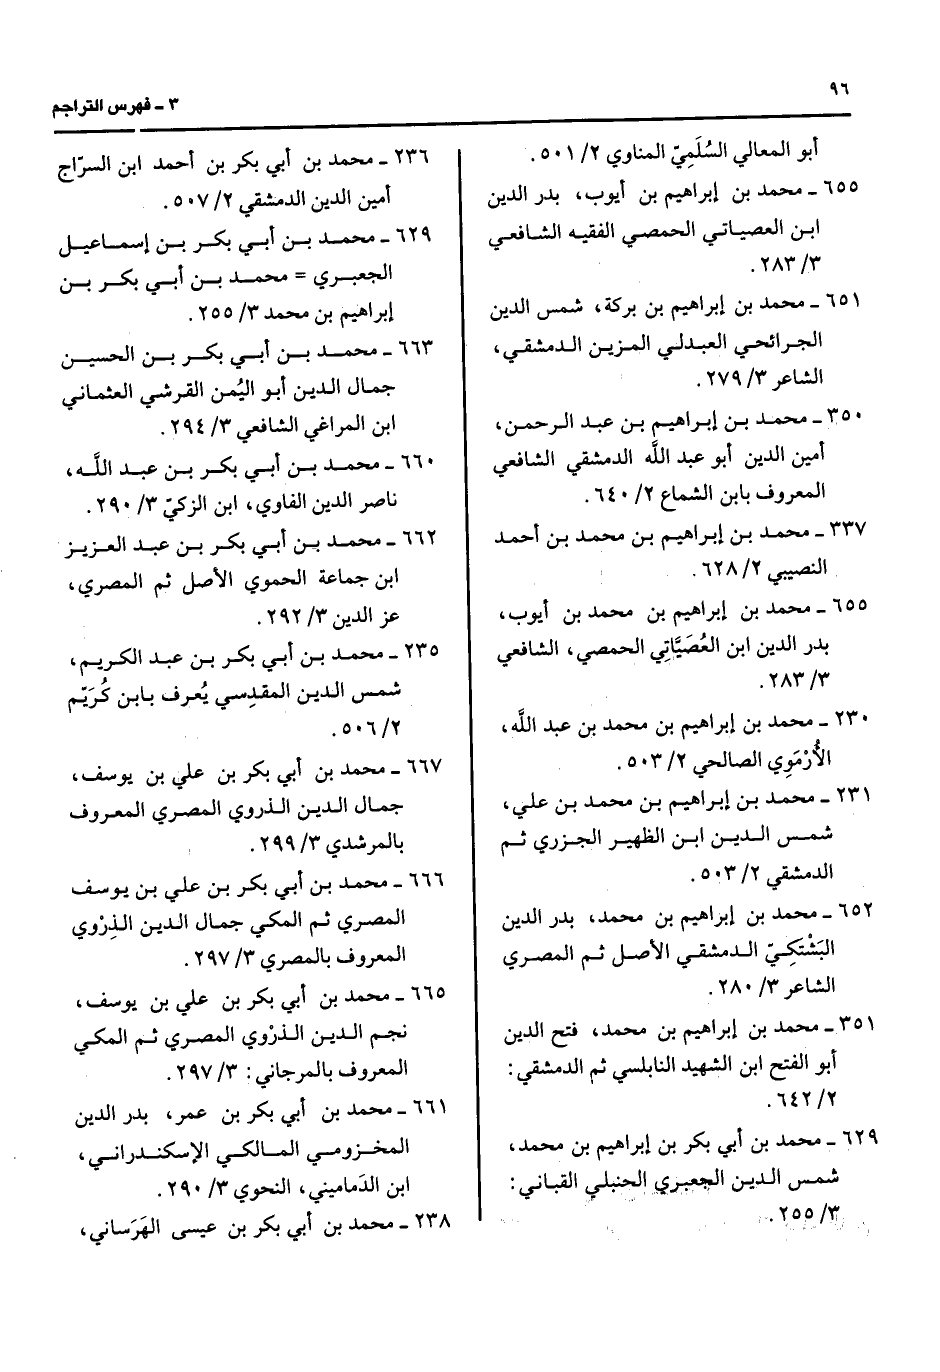 ٩٦
٣ ـ فهرس التراجم
أبو المعالي السُّلَمِيّ المناوي ٢/ ٥٠١.
٦٥٥ ـ محمد بن إبراهيم بن أيوب، بدر الدين
ابن العصياتي الحمصي الفقيه الشافعي
٣/ ٢٨٣.
٦٥١ ـ محمد بن إبراهيم بن بركة، شمس الدين
الجرائحي العبدلي المزين الدمشقي،
الشاعر ٣/ ٢٧٩.
٣٥٠ ـ محمد بن إبراهيم بن عبد الرحمن،
أمين الدين أبو عبد الله الدمشقي الشافعي
المعروف بابن الشماع ٢/ ٦٤٠.
٣٣٧ ـ محمد بن إبراهيم بن محمد بن أحمد
النصيبي ٢/ ٦٢٨.
٦٥٥ ـ محمد بن إبراهيم بن محمد بن أيوب،
بدر الدين ابن العُصَيَّاتِي الحمصي، الشافعي
٣/ ٢٨٣.
٢٣٠ ـ محمد بن إبراهيم بن محمد بن عبد الله،
الأُرْمَوِي الصالحي ٢/ ٥٠٣.
٢٣١ ـ محمد بن إبراهيم بن محمد بن علي،
شمس الدين ابن الظهير الجزري ثم
الدمشقي ٢/ ٥٠٣.
٦٥٢ ـ محمد بن إبراهيم بن محمد، بدر الدين
البَشْتَكِيّ الدمشقي الأصل ثم المصري
الشاعر ٣/ ٢٨٠.
٣٥١ ـ محمد بن إبراهيم بن محمد، فتح الدين
أبو الفتح ابن الشهيد النابلسي ثم الدمشقي:
٢/ ٦٤٢.
٦٢٩ ـ محمد بن أبي بكر بن إبراهيم بن محمد،
شمس الدين الجعبري الحنبلي القباني:
٣/ ٢٥٥.
٢٣٦ ـ محمد بن أبي بكر بن أحمد ابن السرّاج
أمين الدين الدمشقي ٢/ ٥٠٧.
٦٢٩ ـ محمد بن أبي بكر بن إسماعيل
الجعبري = محمد بن أبي بكر بن
إبراهيم بن محمد ٣/ ٢٥٥.
٦٦٣ ـ محمد بن أبي بكر بن الحسين
جمال الدين أبو اليُمن القرشي العثماني
ابن المراغي الشافعي ٣/ ٢٩٤.
٦٦٠ ـ محمد بن أبي بكر بن عبد الله،
ناصر الدين الفاوي، ابن الزكيّ ٣/ ٢٩٠.
٦٦٢ ـ محمد بن أبي بكر بن عبد العزيز
ابن جماعة الحموي الأصل ثم المصري،
عز الدين ٣/ ٢٩٢.
٢٣٥ ـ محمد بن أبي بكر بن عبد الكريم،
شمس الدين المقدِسي يُعرف بابن كُرَيّم
٢/ ٥٠٦.
٦٦٧ ـ محمد بن أبي بكر بن علي بن يوسف،
جمال الدين الذروي المصري المعروف
بالمرشدي ٣/ ٢٩٩.
٦٦٦ ـ محمد بن أبي بكر بن علي بن يوسف
المصري ثم المكي جمال الدين الذِرْوي
المعروف بالمصري ٣/ ٢٩٧.
٦٦٥ ـ محمد بن أبي بكر بن علي بن يوسف،
نجم الدين الذرْوي المصري ثم المكي
المعروف بالمرجاني: ٣/ ٢٩٧.
٦٦١ ـ محمد بن أبي بكر بن عمر، بدر الدين
المخزومي المالكي الإسكندراني،
ابن الدَماميني، النحوي ٣/ ٢٩٠.
٢٣٨ ـ محمد بن أبي بكر بن عيسى الهَرَساني،